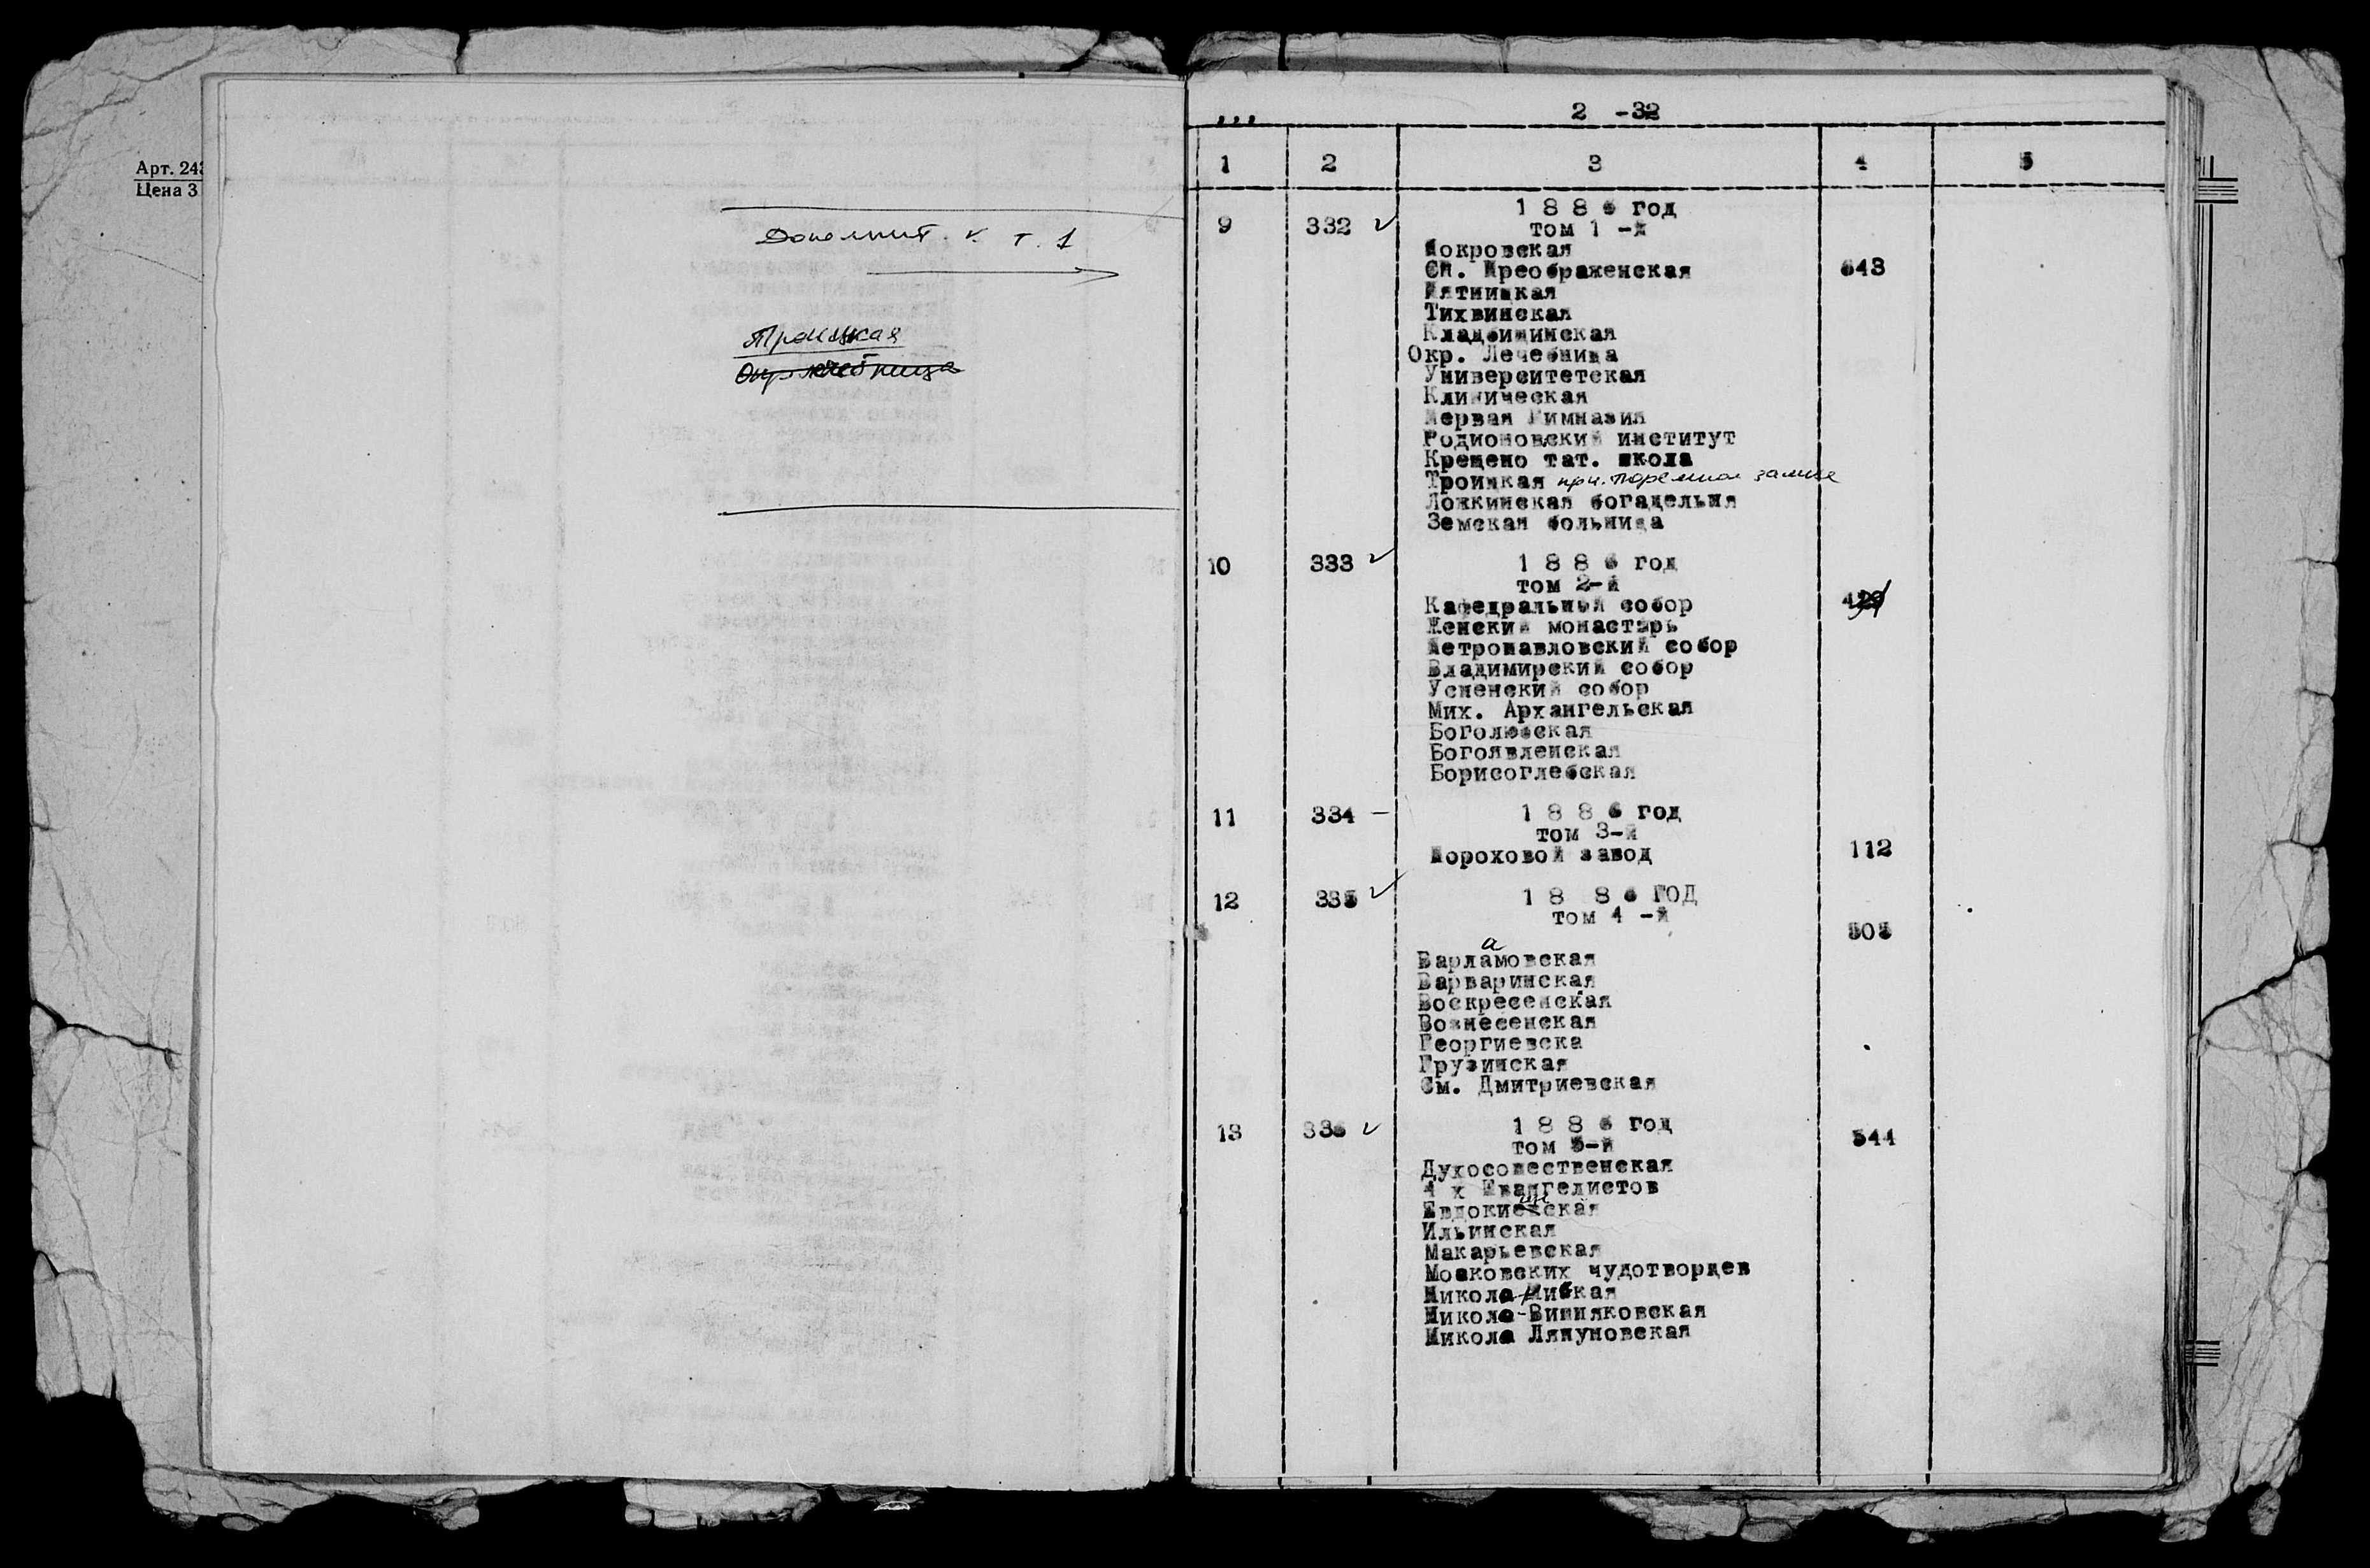 Арт. 243
Цена 3
Дополнит. к т. 1
Троицкая
Окр лечебница
2 -32
1 2 3 4 5
9 332 1 8 8 6 год
том 1 -й
Покровская
Сп. Преображенская 643
Пятницкая
Тихвинская
Кладбищинская
Окр. Лечебница
Университетская
Клиническая
Первая Гимназия
Родионовский институт
Крещено тат. школа
Троицкая при тюремном замке
Ложкинская богадельня
Земская больница
10 333 1 8 8 6 год
том 2-й
Кафедральный собор 429
Женский монастырь
Петропавловский собор
Владимирский собор
Успенский собор
Мих. Архангельская
Боголюбская
Богоявленская
Борисоглебская
11 334 — 1 8 8 6 год
том 3-й
Пороховой завод 112
12 335 1 8 8 6 ГОД
том 4 -й
505
а
Варламовская
Варваринская
Воскресенская
Вознесенская
Георгиевска
Грузинская
См. Дмитриевская
13 336 1 8 8 6 год
том 5-й 544
Духосошественская
4 х Евангелистов
Евдокиевская
Ильинская
Макарьевская
Московских чудотворцев
Никола-Нисская
Николо-Вишняковская
Никола Ляпуновская